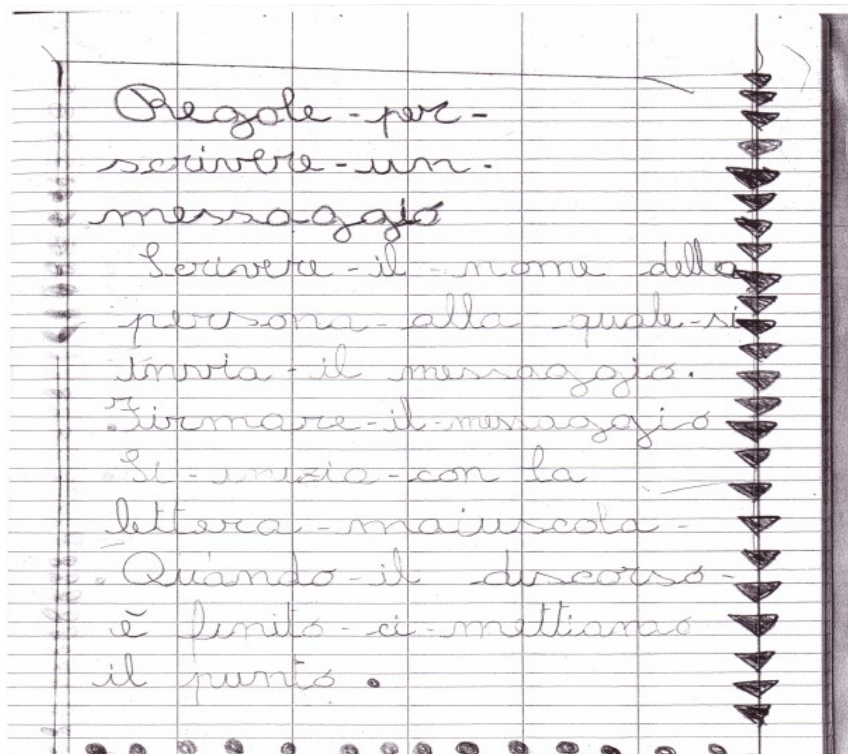 Regole-per-
scrivere-un-
messaggio
Scrivere-il-nome della
persona-alla quale-si
invia-il messaggio.
Firmare-il-messaggio
Si-inizia-con la
lettera-maiuscola-
.Quando-il discorso-
è finito-ci-mettiamo
il punto.